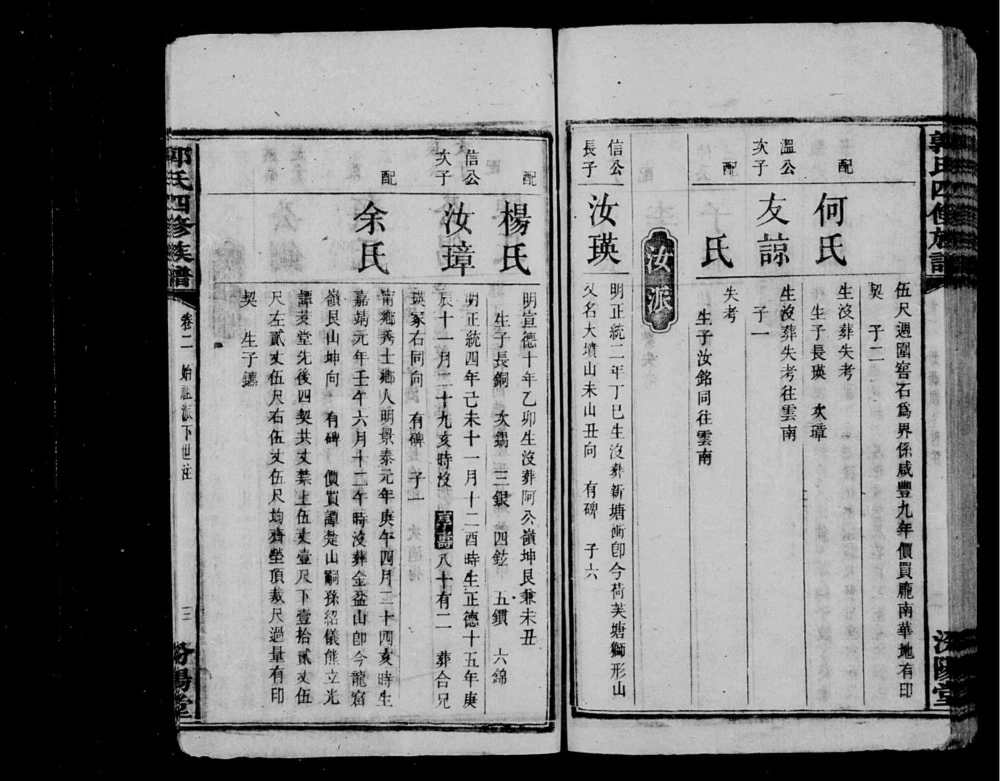 郭氏四修族譜
汾陽堂
伍尺週圍窖石爲界係咸豐九年價買龐南華地有印
契 子二
配 何氏 生沒葬失考
生子長瑛 次璋
溫公次子 友諒 生沒葬失考往雲南
子一
配 氏 失考
生子汝銘同往雲南
汝派
信公長子 汝瑛 明正統二年丁巳生沒葬新塘衝卽今荷芙塘獅形山
又名大墳山未山丑向 有碑 子六
配 楊氏 明宣德十年乙卯生沒葬阿公嶺坤艮兼未丑
生子長銅 次錫 三銀 四鉉 五鑽 六錦
信公次子 汝璋 明正統四年己未十一月十二酉時生正德十五年庚
辰十一月二十九亥時沒 享壽八十有二 葬合兄
瑛冢右同向 有碑 子一
配 余氏 南鄉秀士鄉人明景泰元年庚午四月二十四亥時生
嘉靖元年壬午六月十二午時沒葬金盆山卽今龍窩
嶺艮山坤向 有碑 價買譚楚山嗣孫紹儀熊立光
譚葵堂先後四契共丈禁上伍丈壹尺下壹拾貳丈伍
尺左貳丈伍尺右伍丈伍尺均齊塋頂裁尺過量有印
契 生子鑣
郭氏四修族譜
卷二 始祖派下世註
三
汾陽堂